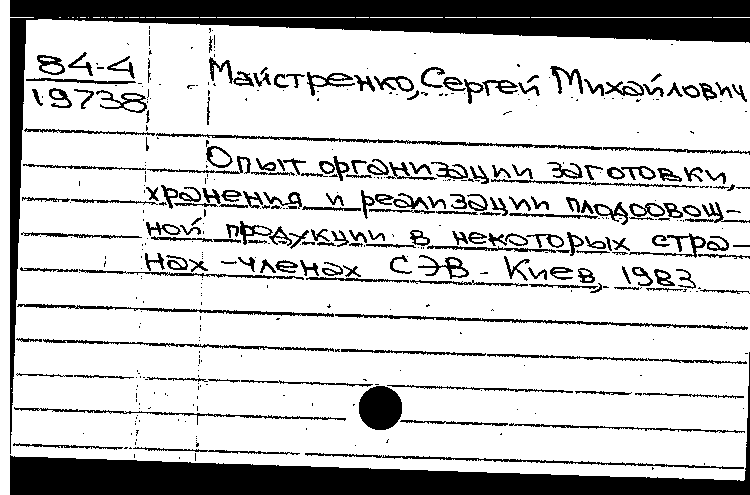 84-4
19738
Майстренко, Сергей Михайлович
Опыт организации заготовки,
хранения и реализации плодоовощ-
ной продукции в некоторых стра-
нах -членах СЭВ. Киев, 1983